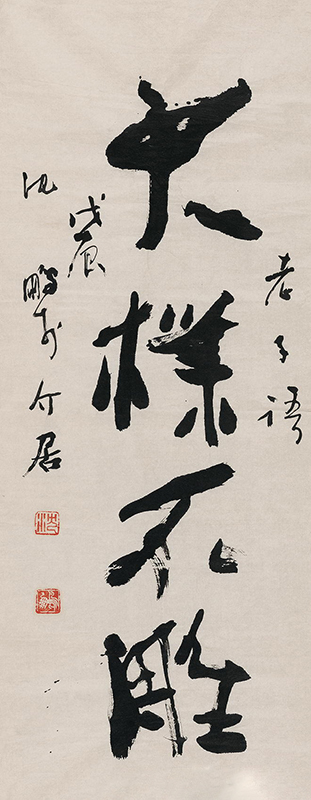 大樸不雕
老子語
戊辰
沈鵬於介居
沈